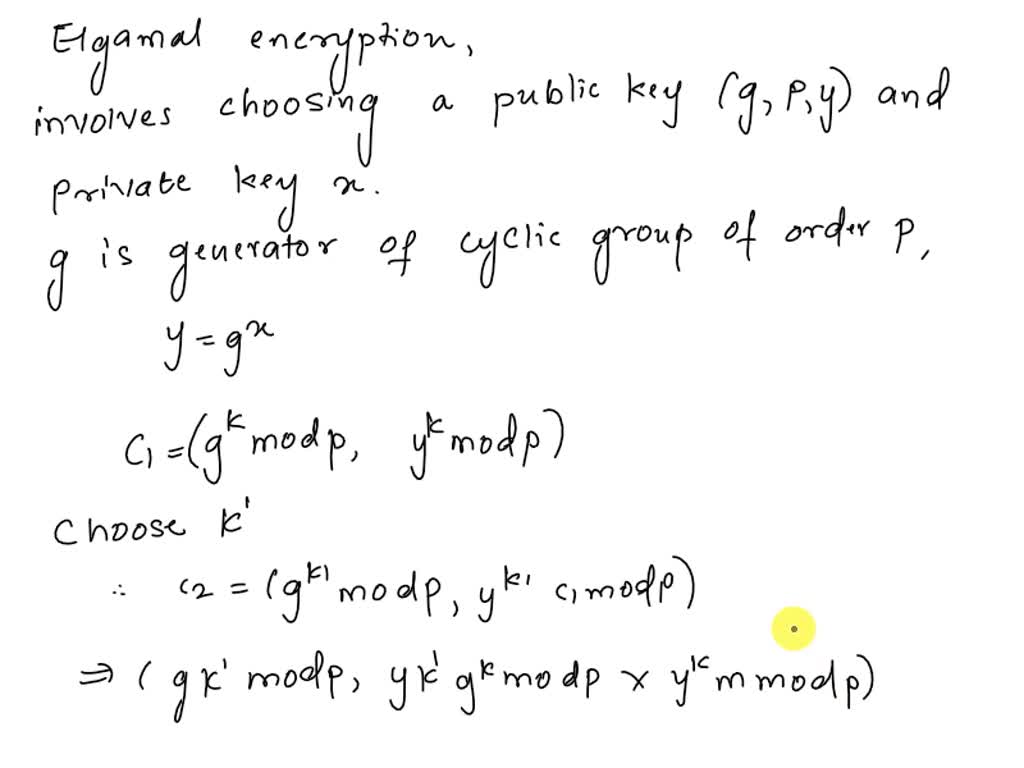 Elgamal encryption,
involves choosing a public key (g, p, y) and
private key x.
g is generator of cyclic group of order p,
y = g^x
C1 = (g^k mod p, y^k mod p)
Choose k'
∴ c2 = (g^k' mod p, y^k' c1 mod p)
⇒ (gk' mod p, yk' g^k mod p × y^k m mod p)